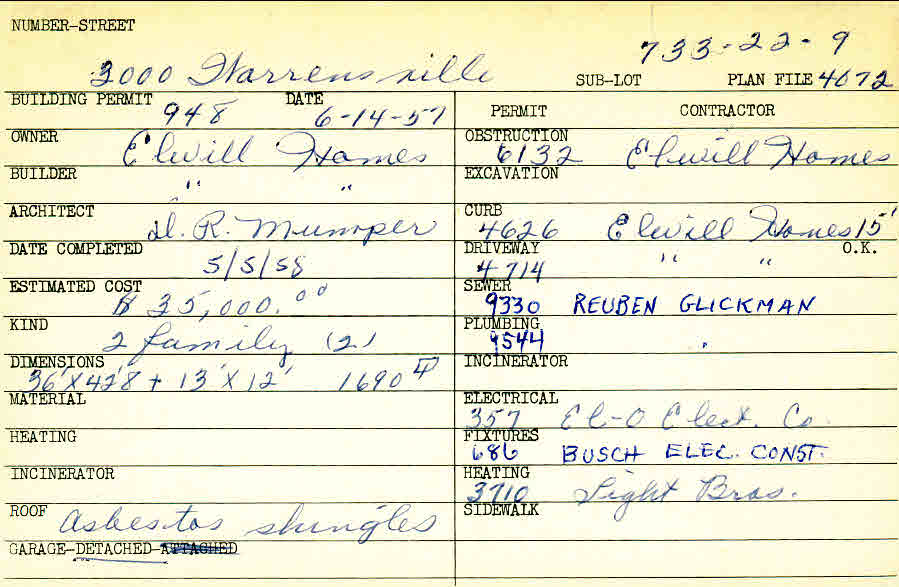 NUMBER-STREET
3000 Warrensville
733-22-9
SUB-LOT PLAN FILE 4072
BUILDING PERMIT 948 DATE 6-14-57
OWNER Elwill Homes
BUILDER " "
ARCHITECT D. R. Mumper
DATE COMPLETED 5/5/58
ESTIMATED COST $ 35,000.00
KIND 2 family (2)
DIMENSIONS 36'X42'8 + 13'X12' 1690
MATERIAL
HEATING
INCINERATOR
ROOF Asbestos shingles
GARAGE-DETACHED-ATTACHED
PERMIT CONTRACTOR
OBSTRUCTION 6132 Elwill Homes
EXCAVATION
CURB 4626 Elwill Homes 15'
DRIVEWAY 4714 " " O.K.
SEWER 9330 REUBEN GLICKMAN
PLUMBING 9544 "
INCINERATOR
ELECTRICAL 357 El-O Elect. Co.
FIXTURES 686 BUSCH ELEC. CONST.
HEATING 3710 Light Bros.
SIDEWALK